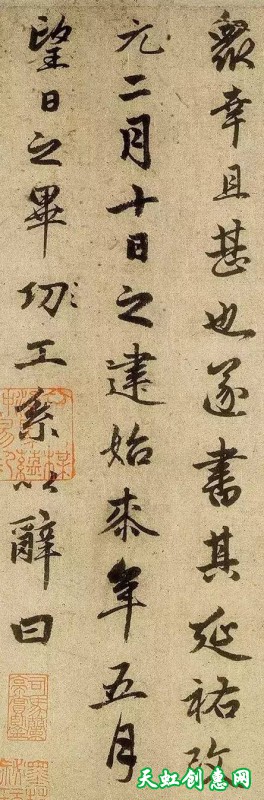 衆幸且甚也遂書其延祐改
元二月十日之建始来年五月
望日之畢功工系以辭曰
天虹创意网